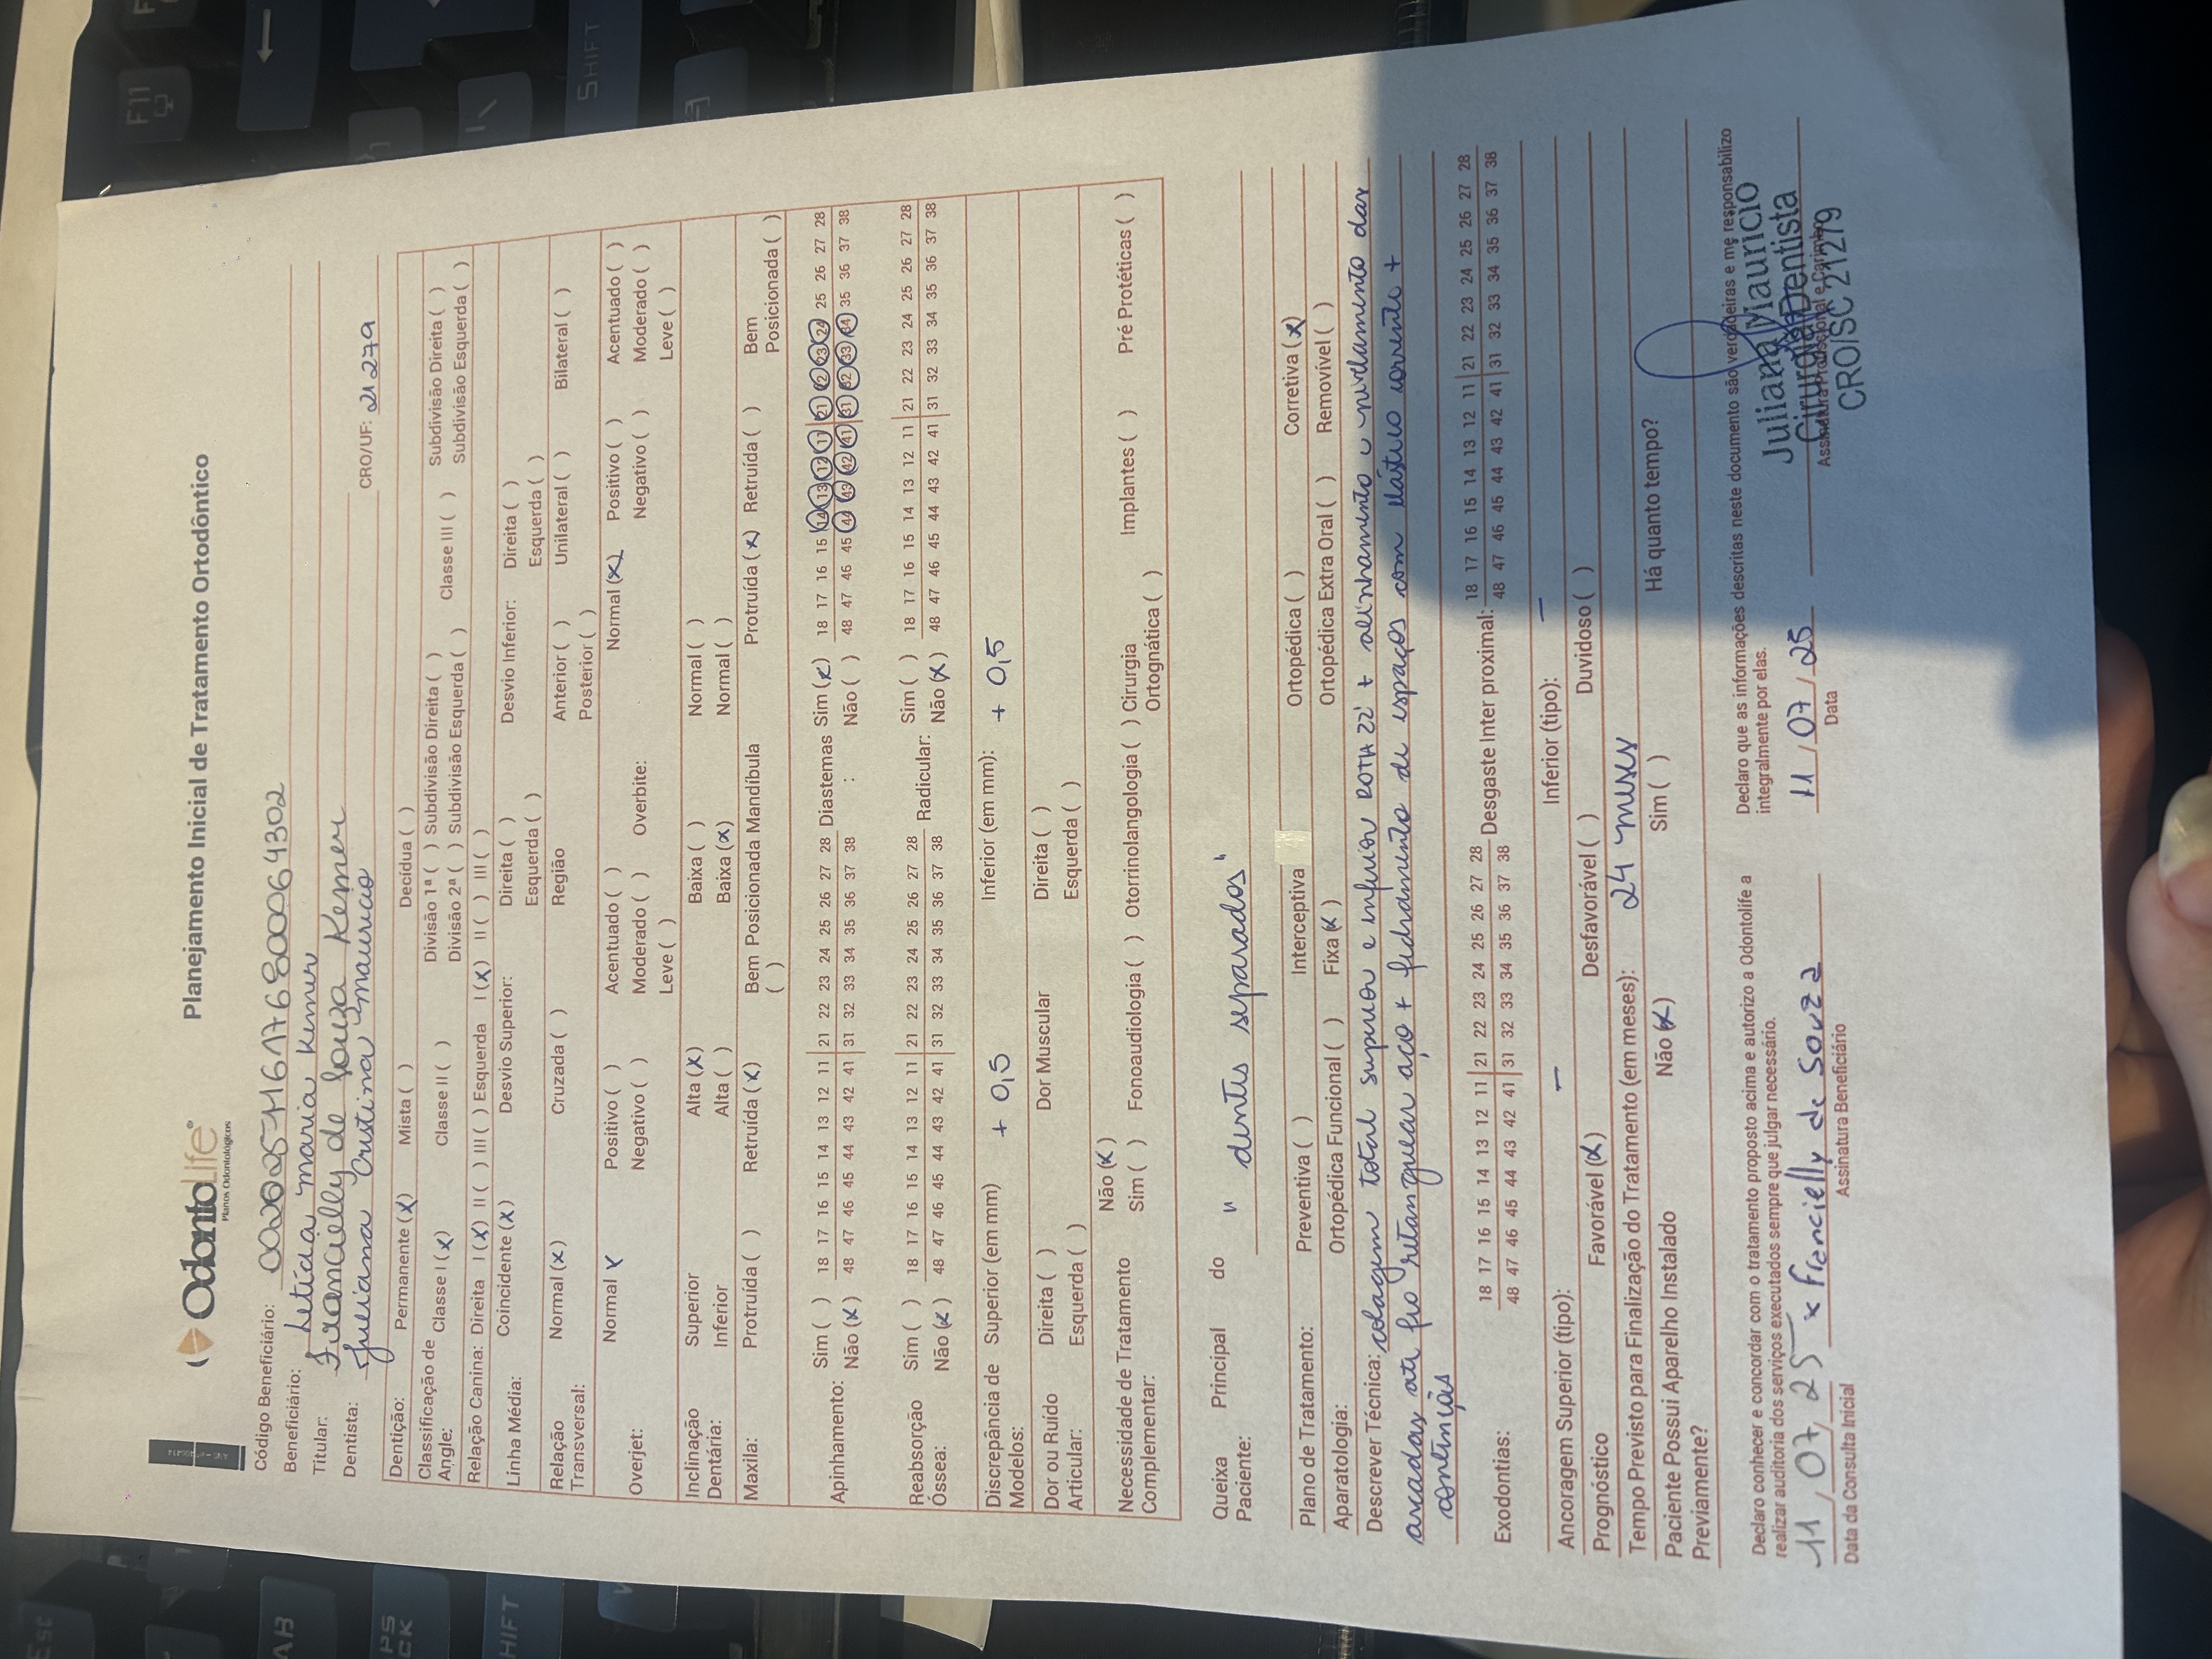 OdontoLife®
Planos Odontológicos
Planejamento Inicial de Tratamento Ortodôntico
Código Beneficiário:
Beneficiário: Letícia maria Kemer
Titular: Francielly de Souza Kemer
Dentista: Juliana Cristina Mauricio CRO/UF: 21279
Dentição: Permanente (x) Mista ( ) Decídua ( )
Classificação de Angle: Classe I (x) Classe II ( ) Divisão 1ª ( ) Subdivisão Direita ( ) Classe III ( ) Subdivisão Direita ( )
Divisão 2ª ( ) Subdivisão Esquerda ( ) Subdivisão Esquerda ( )
Relação Canina: Direita I (x) II ( ) III ( ) Esquerda I (x) II ( ) III ( )
Linha Média: Coincidente (x) Desvio Superior: Direita ( ) Desvio Inferior: Direita ( )
Esquerda ( ) Esquerda ( )
Relação Transversal: Normal (x) Cruzada ( ) Região Anterior ( ) Unilateral ( ) Bilateral ( )
Posterior ( )
Overjet: Normal x Positivo ( ) Acentuado ( ) Overbite: Normal (x) Positivo ( ) Acentuado ( )
Negativo ( ) Moderado ( ) Negativo ( ) Moderado ( )
Leve ( ) Leve ( )
Inclinação Dentária: Superior Alta (x) Baixa ( ) Normal ( )
Inferior Alta ( ) Baixa (x) Normal ( )
Maxila: Protruída ( ) Retruída (x) Bem Posicionada ( ) Mandíbula Protruída (x) Retruída ( ) Bem Posicionada ( )
Apinhamento: Sim ( ) 18 17 16 15 14 13 12 11 21 22 23 24 25 26 27 28 Diastemas : Sim (x) 18 17 16 15 14 13 12 11 21 22 23 24 25 26 27 28
Não (x) 48 47 46 45 44 43 42 41 31 32 33 34 35 36 37 38 Não ( ) 48 47 46 45 44 43 42 41 31 32 33 34 35 36 37 38
Reabsorção Óssea: Sim ( ) 18 17 16 15 14 13 12 11 21 22 23 24 25 26 27 28 Radicular: Sim ( ) 18 17 16 15 14 13 12 11 21 22 23 24 25 26 27 28
Não (x) 48 47 46 45 44 43 42 41 31 32 33 34 35 36 37 38 Não (x) 48 47 46 45 44 43 42 41 31 32 33 34 35 36 37 38
Discrepância de Modelos: Superior (em mm) + 0,5 Inferior (em mm): + 0,5
Dor ou Ruído Articular: Direita ( ) Dor Muscular Direita ( )
Esquerda ( ) Esquerda ( )
Necessidade de Tratamento Complementar: Não (x)
Sim ( ) Fonoaudiologia ( ) Otorrinolangologia ( ) Cirurgia Ortognática ( ) Implantes ( ) Pré Protéticas ( )
Queixa Principal do Paciente: " dentes separados "
Plano de Tratamento: Preventiva ( ) Interceptiva Ortopédica ( ) Corretiva (x)
Aparatologia: Ortopédica Funcional ( ) Fixa (x) Ortopédica Extra Oral ( ) Removível ( )
Descrever Técnica: colagem total superior e inferior ROTH 22' + alinhamento e nivelamento das
arcadas até fio retanguear aço + fechamento de espaços com elástico corrente +
contenções
Exodontias: 18 17 16 15 14 13 12 11 21 22 23 24 25 26 27 28 Desgaste Inter proximal: 18 17 16 15 14 13 12 11 21 22 23 24 25 26 27 28
48 47 46 45 44 43 42 41 31 32 33 34 35 36 37 38 48 47 46 45 44 43 42 41 31 32 33 34 35 36 37 38
Ancoragem Superior (tipo): — Inferior (tipo): —
Prognóstico Favorável (x) Desfavorável ( ) Duvidoso ( )
Tempo Previsto para Finalização do Tratamento (em meses): 24 meses
Paciente Possui Aparelho Instalado Previamente? Não (x) Sim ( ) Há quanto tempo?
Declaro conhecer e concordar com o tratamento proposto acima e autorizo a Odontolife a
realizar auditoria dos serviços executados sempre que julgar necessário.
11 / 07 / 25 x Francielly de Souza
Data da Consulta Inicial Assinatura Beneficiário
Declaro que as informações descritas neste documento são verdadeiras e me responsabilizo
integralmente por elas.
11 / 07 / 25
Data Assinatura Profissional e Carimbo
Juliana Mauricio
Cirurgiã Dentista
CRO/SC 21279
F11
SHIFT